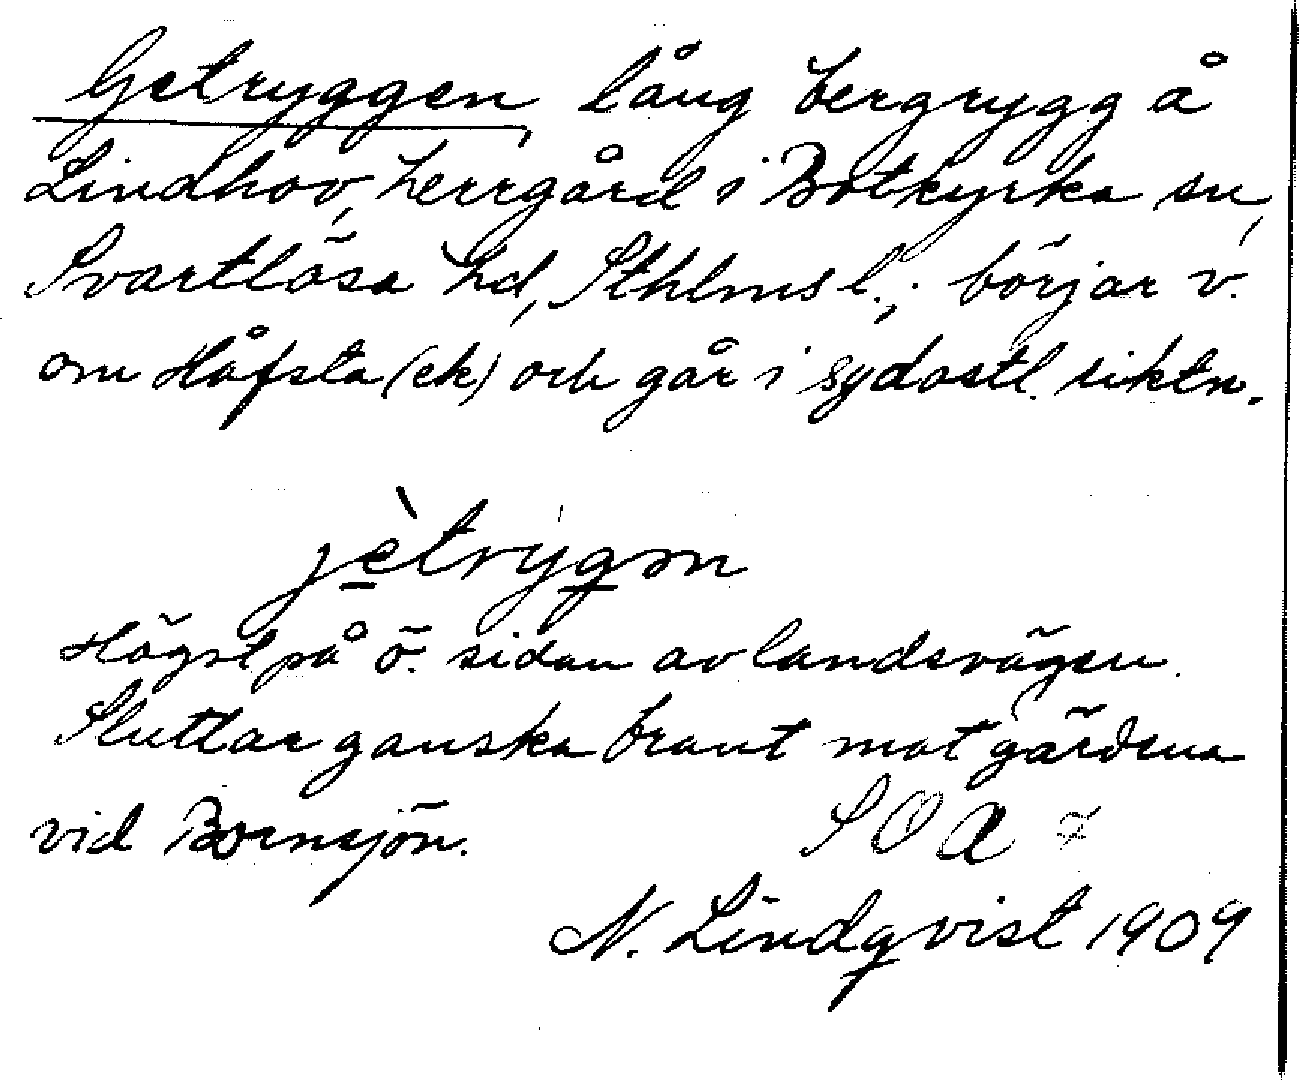 Getryggen, lång bergrygg å
Lindhov, herrgård i Botkyrka sn,
Svartlösa hd, Sthlms l.; börjar v.
om Håfsta (ek) och går i sydostl. riktn.
jètrygən
Högst på ö. sidan av landsvägen.
Sluttar ganska brant mot gärdena
vid Bornsjön. SOA
N. Lindqvist 1909